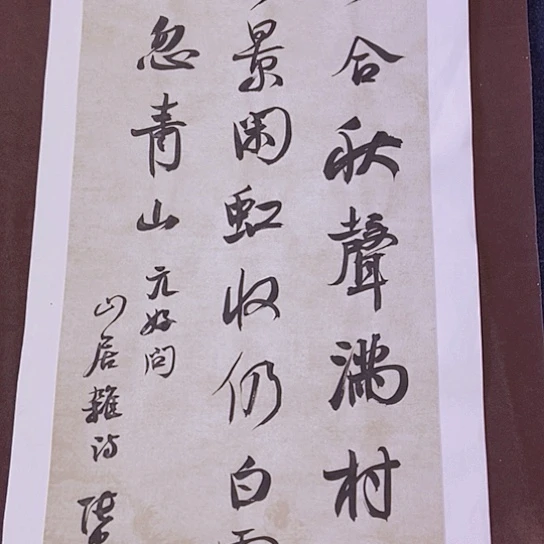 合秋聲滿村
景闲虹收仍白
忽青山
元好问
山居雜诗